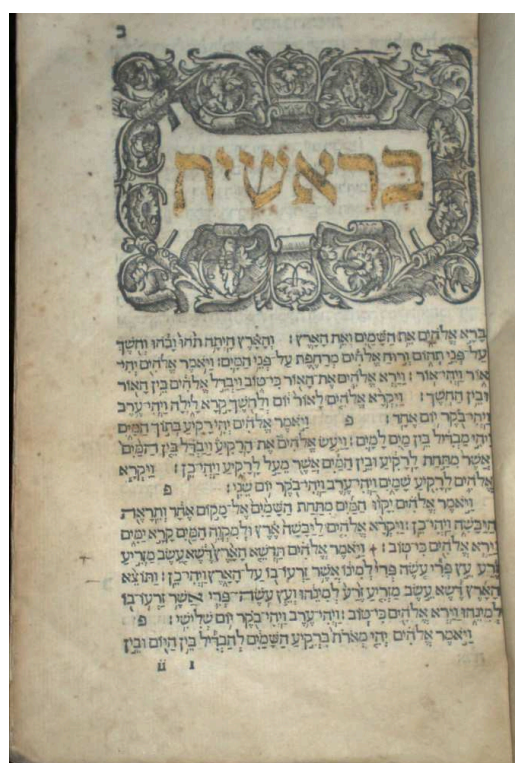 ב
בראשית
בָּרָא אֱלֹהִים אֵת הַשָּׁמַיִם וְאֵת הָאָרֶץ׃ וְהָאָרֶץ הָיְתָה תֹהוּ וָבֹהוּ וְחֹשֶׁךְ
עַל־פְּנֵי תְהוֹם וְרוּחַ אֱלֹהִים מְרַחֶפֶת עַל־פְּנֵי הַמָּיִם׃ וַיֹּאמֶר אֱלֹהִים יְהִי־
אוֹר וַיְהִי־אוֹר׃ וַיַּרְא אֱלֹהִים אֶת־הָאוֹר כִּי־טוֹב וַיַּבְדֵּל אֱלֹהִים בֵּין הָאוֹר
וּבֵין הַחֹשֶׁךְ׃ וַיִּקְרָא אֱלֹהִים לָאוֹר יוֹם וְלַחֹשֶׁךְ קָרָא לָיְלָה וַיְהִי־עֶרֶב
וַיְהִי־בֹקֶר יוֹם אֶחָד׃ פ וַיֹּאמֶר אֱלֹהִים יְהִי רָקִיעַ בְּתוֹךְ הַמָּיִם
וִיהִי מַבְדִּיל בֵּין מַיִם לָמָיִם׃ וַיַּעַשׂ אֱלֹהִים אֶת־הָרָקִיעַ וַיַּבְדֵּל בֵּין הַמַּיִם
אֲשֶׁר מִתַּחַת לָרָקִיעַ וּבֵין הַמַּיִם אֲשֶׁר מֵעַל לָרָקִיעַ וַיְהִי־כֵן׃ וַיִּקְרָא
אֱלֹהִים לָרָקִיעַ שָׁמָיִם וַיְהִי־עֶרֶב וַיְהִי־בֹקֶר יוֹם שֵׁנִי׃ פ
וַיֹּאמֶר אֱלֹהִים יִקָּווּ הַמַּיִם מִתַּחַת הַשָּׁמַיִם אֶל־מָקוֹם אֶחָד וְתֵרָאֶה
הַיַּבָּשָׁה וַיְהִי־כֵן׃ וַיִּקְרָא אֱלֹהִים לַיַּבָּשָׁה אֶרֶץ וּלְמִקְוֵה הַמַּיִם קָרָא יַמִּים
וַיַּרְא אֱלֹהִים כִּי־טוֹב׃ וַיֹּאמֶר אֱלֹהִים תַּדְשֵׁא הָאָרֶץ דֶּשֶׁא עֵשֶׂב מַזְרִיעַ
זֶרַע עֵץ פְּרִי עֹשֶׂה פְּרִי לְמִינוֹ אֲשֶׁר זַרְעוֹ־בוֹ עַל־הָאָרֶץ וַיְהִי־כֵן׃ וַתּוֹצֵא
הָאָרֶץ דֶּשֶׁא עֵשֶׂב מַזְרִיעַ זֶרַע לְמִינֵהוּ וְעֵץ עֹשֶׂה־פְּרִי אֲשֶׁר זַרְעוֹ־בוֹ
לְמִינֵהוּ וַיַּרְא אֱלֹהִים כִּי־טוֹב׃ וַיְהִי־עֶרֶב וַיְהִי־בֹקֶר יוֹם שְׁלִישִׁי׃ פ
וַיֹּאמֶר אֱלֹהִים יְהִי מְאֹרֹת בִּרְקִיעַ הַשָּׁמַיִם לְהַבְדִּיל בֵּין הַיּוֹם וּבֵין